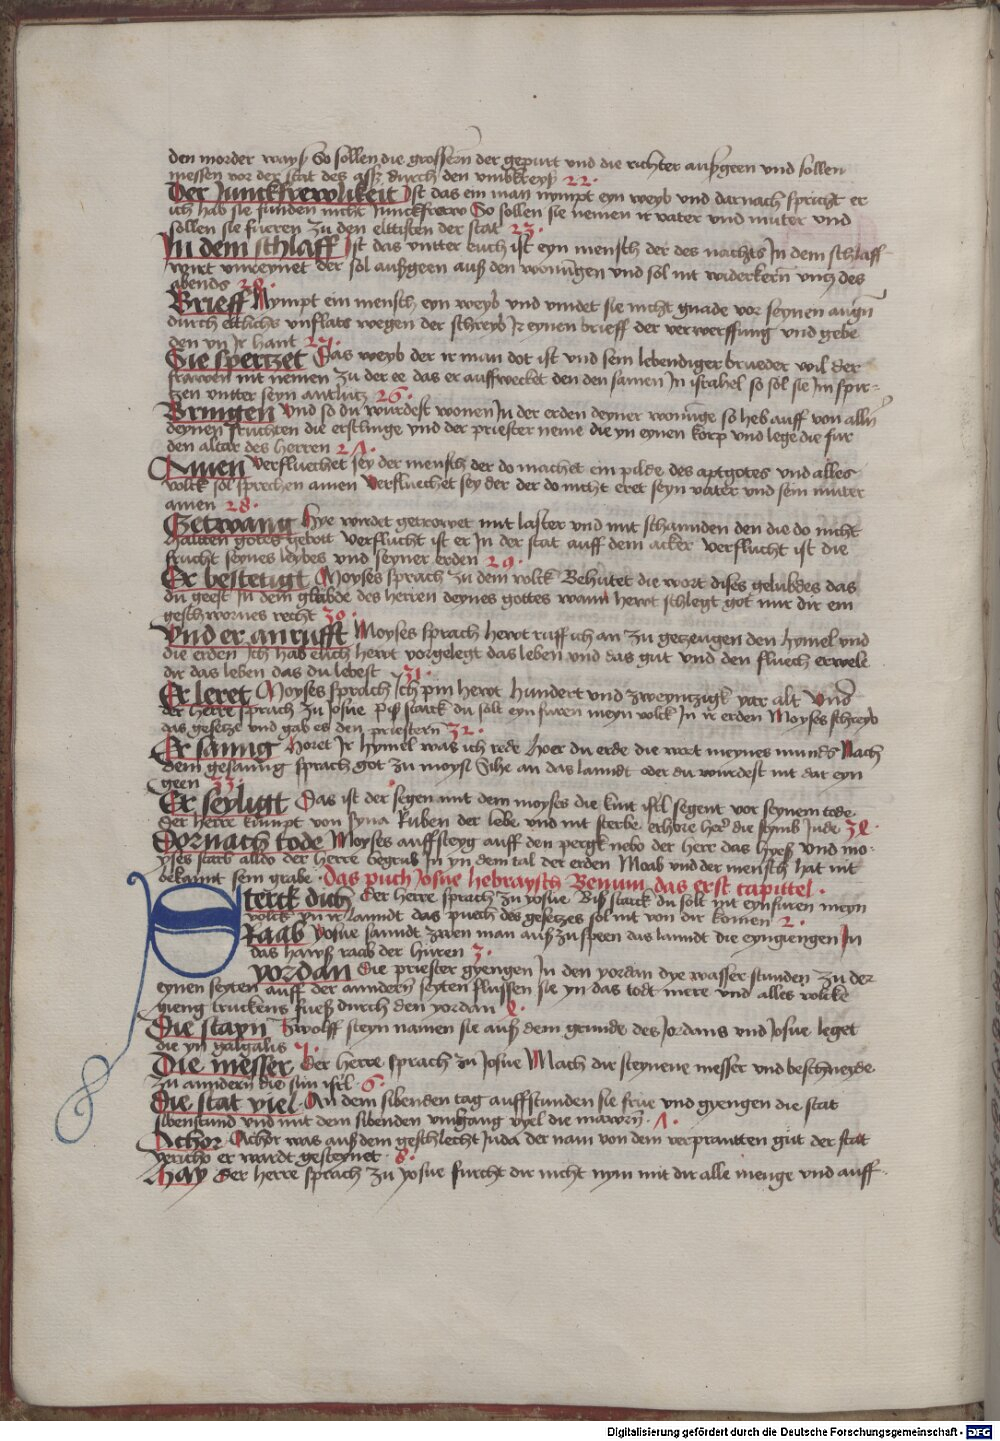 den morder wayß So sollen die grossern der gepurt und die richter außgeen und sollen
messen vor der stat des aß durch den umbkreyß 22.
Der Junckfrewlikeit Ist das ein man nympt eyn weyb und darnach spricht er
ich hab sie funden nicht Junckfrew So sollen sie nemen ir vater und muter und
sollen sie fueren zu den elttisten der stat 23.
In dem schlaff Ist das untter euch ist eyn mensch der des nachts In dem schlaff
wirt unreynet der sol außgeen auß den wonungen und sol nit widerkern untz des
abends
Brieff Nympt ein mensch eyn weyb und vindet sie nicht gnade vor seynen augn
durch ettlichs unflats wegen der schreyb Ir eynen brieff der verwerffung und gebe
den yn Ir hant
Sie spertzet Das weyb der ir man dot ist und sein lebendiger brueder wil der
frawen nit nemen zu der ee das er aufferwecket den den samen In israhel so sol sie Im spir-
tzen untter seyn antlutz 26.
Bringen Und so du wurdest wonen In der erden deyner wonunge so heb auff von alln
deynen fruchten die erstlinge und der priester neme die yn eynen korp und lege die fur
den altar des herren 27.
Amen Verfluechet sey der mensch der do machet ein pilde des aptgotes und alles
volck sol sprechen amen Verfluechet sey der der do nicht eret seyn vater und sein muter
amen 28.
Getwang Hye wirdet getrowet mit laster und mit schannden den die do nicht
haltten gotes gebott Verflucht ist er In der stat auff dem acker Verflucht ist die
frucht seynes leybes und seyner erden 29.
Er bestetigt Moyses sprach zu dem volck Behutet die wort dises gelubdes das
du geest In dem glubde des herren deynes gottes wann hewt schlegt got mit dir ein
geschwornes recht 30.
Und er anrufft Moyses sprach hewt ruff ich an zu getzeugen den hymel und
die erden Ich hab euch hewt vorgelegt das leben und das gut und den fluech erwele
dir das leben das du lebest 31.
Er leret Moyses sprach Ich pin hewt hundert und zweyntzigk yar alt Und
der herre sprach zu Josue piß starck du solt eyn furen meyn volck In ir erden Moyses schreyb
das gesetze und gab es den priestern 32.
Er sanng Horet Ir hymel was ich rede Hoer du erde die wort meynes munds Nach
dem gesanng sprach got zu moysi Sihe an das lanndt oder du wurdest nit dar eyn
geen 33.
Er seyligt Das ist der segen mit dem moyses die kint isrl segent vor seynem tode
der herre kumpt von syna Ruben der lebe und nit sterbe erhore her die stymb Jude 34.
Dornach tode Moyses auffsteyg auff den pergk nebo der herr das hyeß Und mo-
yses starb alldo der herre begrub In yn dem tal der erden Moab und der mensch hat nit
bekannt sein grabe. das puch Josue hebraysch Bennum das erst capittel.
Sterck dich Der herre sprach zu yosue Biß starck du solt mit eynfuren meyn
volck yn ir lanndt das puech des gesetzes sol nit von dir komen 2.
Raab Yosue sanndt zwen man auß zu speen das lanndt die eyngiengen In
das hawß raab der huren 3.
yordan Die priester gyengen In den yordan dye wasser stunden zu der
eynen seyten auff der anndern seyten flussen sie yn das todt mere und alles volcke
gieng truckens fueß durch den yordan 4.
Die stayn Zwolff steyn namen sie auß dem grunde des Jordans und Josue leget
die yn galgalis 5.
Die messer Der herre sprach zu Josue Mach dir steynene messer und beschneyde
zu anndern die sun isrl. 6.
Die stat viel. An dem sibenden tag auffstunden sie frue und gyengen die stat
sibenstund und mit dem sibenden umbgang vyel die mawrn. 7.
Achor Achor was auß dem geschlecht Juda der nam von dem verprantten gut der stat
yericho er wardt gesteynet. 8.
Hay Der herre sprach zu yosue furcht dir nicht nym mit dir alle menge und auff-
Digitalisierung gefördert durch die Deutsche Forschungsgemeinschaft - DFG